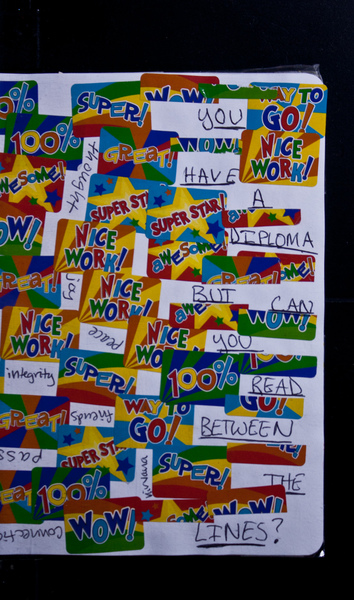 WAY TO
SUPER! WOW! YOU GO!
100% GREAT! WOW! NICE
WORK!
thought HAVE
AWESOME! A
SUPER STAR SUPER STAR!
NICE DIPLOMA
WORK! AWESOME!
GREAT! joy NICE BUT CAN
WORK! WOW!
NICE peace NICE YOU
WORK! WORK!
integrity SUPER! 100% READ
GREAT! friends WAY TO GO!
GO! BETWEEN
SUPER STAR
SUPER! THE
100% nirvana
WOW! LINES?